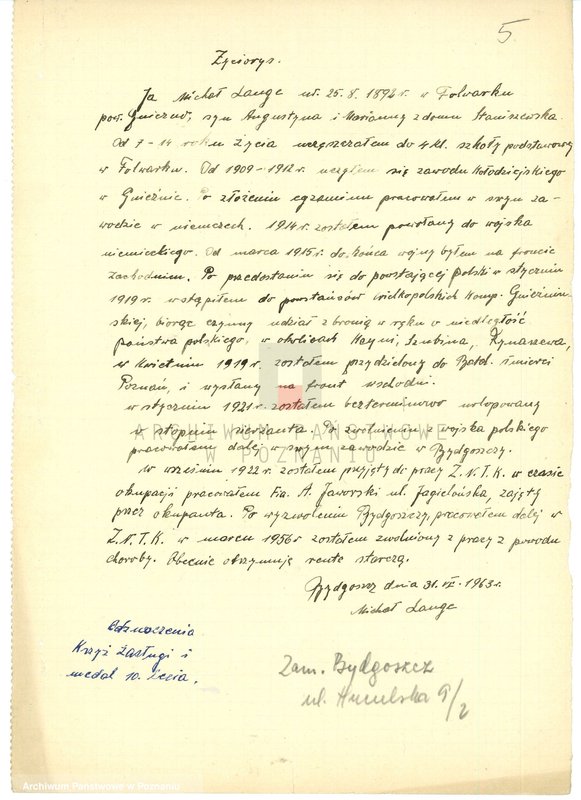 5.
Życiorys.
Ja Michał Lange ur. 25.8.1894r. w Folwarku
pow. Gniezno, syn Augustyna i Marianny z domu Staniszewska.
Od 7-14 roku życia uczęszczałem do 4 kl. szkoły podstawowej
w Folwarku. Od 1909-1912r. uczyłem się zawodu kołodziejskiego
w Gnieźnie. Po złożeniu egzaminu pracowałem w swym za-
wodzie w niemczech. 1914r. zostałem powołany do wojska
niemieckiego. Od marca 1915r. do końca wojny byłem na froncie
zachodnim. Po przedostaniu się do powstającej Polski w styczniu
1919r. wstąpiłem do powstańców wielkopolskich Komp. Gnieźnień-
skiej, biorąc czynny udział z bronią w ręku o niedległość
państwa polskiego, w okolicach Kcyni, Szubina,
w kwietniu 1919r. zostałem przydzielony do Batal. śmierci
Poznań, i wysłany na front wschodni.
w styczniu 1921r. zostałem bezterminowo urlopowany
w stopniu sierżanta. Po zwolnieniu z wojska polskiego
pracowałem dalej w swym zawodzie w Bydgoszczy.
w wrześniu 1922r. zostałem przyjęty do pracy Z.N.T.K. w czasie
okupacji pracowałem Fa. A. Jaworski ul. Jagielońska, zajęty
przez okupanta. Po wyzwoleniu Bydgoszczy, pracowałem dalej w
Z.N.T.K. w marcu 1956r zostałem zwolniony z pracy z powodu
choroby. Obecnie otrzymuję rentę starczą.
Bydgoszcz dnia 31.VII.1963r.
Michał Lange
Odznaczenia
Krzyż zasługi i
medal 10. lecia.
Zam. Bydgoszcz
ul. 9/2
ARCHIWUM PAŃSTWOWE
W POZNANIU
Archiwum Państwowe w Poznaniu